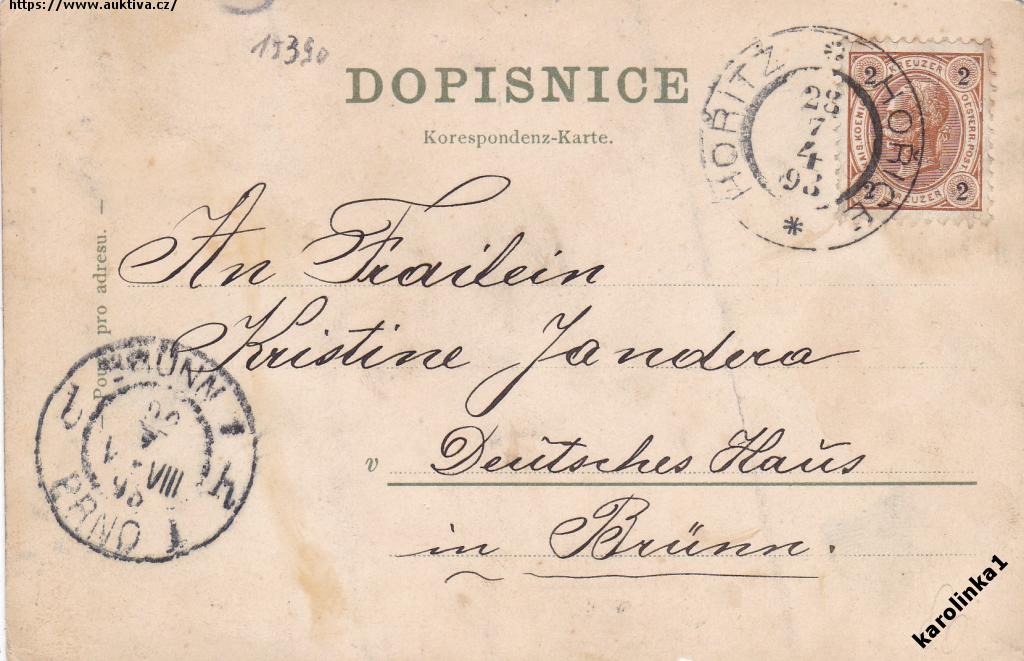 https://www.auktiva.cz/
15390
DOPISNICE
Korespondenz-Karte.
HOŘITZ * HOŘICE *
28
7
4
98
2 KREUZER 2
KAIS. KOENIGL. OESTERR. POST
2 KREUZER 2
pro adresu. —
An Frailein
Kristine Jandera
v Deutsches Haus
in Brünn.
BRÜNN 1
BRNO 1
VIII
98
karolinka1